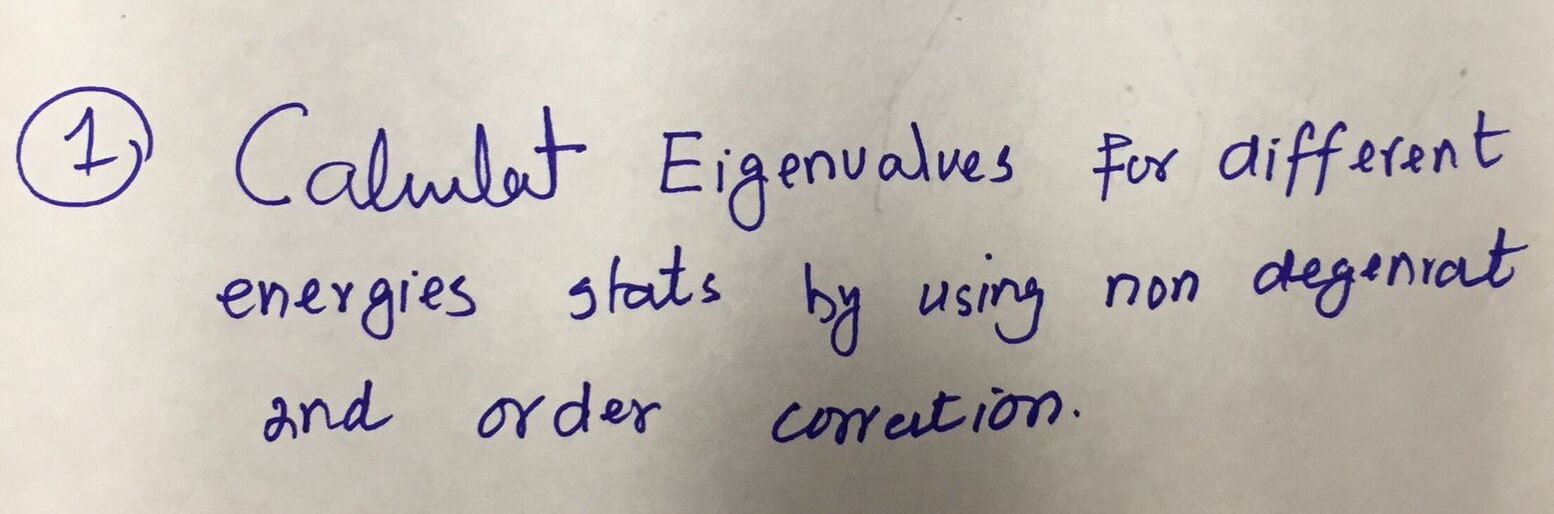 1) Calculat Eigenvalues for different
energies stats by using non degenrat
2nd order correction.